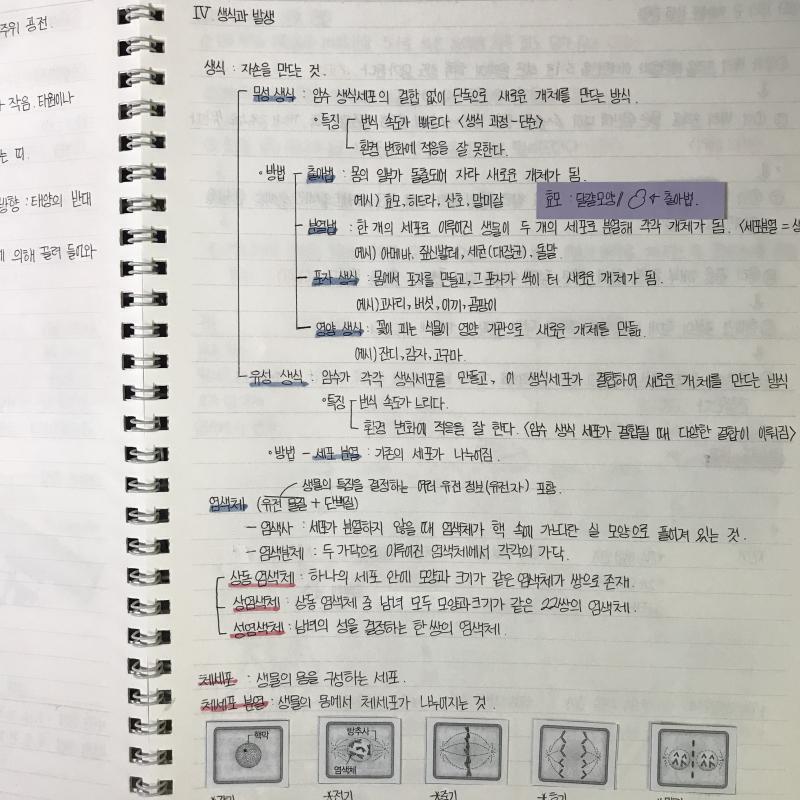 주위 공전.
작음. 타원이나
는 띠.
방향 : 태양의 반대
에 의해 끌려 들어와
Ⅳ 생식과 발생
생식 : 자손을 만드는 것.
무성 생식 : 암수 생식세포의 결합 없이 단독으로 새로운 개체를 만드는 방식.
•특징 번식 속도가 빠르다 <생식 과정-단순>
환경 변화에 적응을 잘 못한다.
•방법 출아법 : 몸의 일부가 돌출되어 자라 새로운 개체가 됨.
예시) 효모, 히드라, 산호, 말미잘
효모 : 달걀모양 // ← 출아법.
분열법 : 한 개의 세포로 이루어진 생물이 두 개의 세포로 분열해 각각 개체가 됨. <세포분열 =
예시) 아메바, 짚신벌레, 세균(대장균), 돌말
포자 생식 : 몸에서 포자를 만들고, 그 포자가 싹이 터 새로운 개체가 됨.
예시) 고사리, 버섯, 이끼, 곰팡이
영양 생식 : 꽃이 피는 식물이 영양 기관으로 새로운 개체를 만듦.
예시) 잔디, 감자, 고구마.
유성 생식 : 암수가 각각 생식세포를 만들고, 이 생식세포가 결합하여 새로운 개체를 만드는 방식
•특징 번식 속도가 느리다.
환경 변화에 적응을 잘 한다. <암수 생식 세포가 결합될 때 다양한 결합이 이뤄짐>
•방법 - 세포 분열 : 기존의 세포가 나누어짐.
생물의 특징을 결정하는 여러 유전 정보(유전자) 포함.
염색체 (유전 물질 + 단백질)
- 염색사 : 세포가 분열하지 않을 때 염색체가 핵 속에 가느다란 실 모양으로 풀어져 있는 것.
- 염색분체 : 두 가닥으로 이루어진 염색체에서 각각의 가닥.
상동 염색체 : 하나의 세포 안에 모양과 크기가 같은 염색체가 쌍으로 존재.
상염색체 : 상동 염색체 중 남녀 모두 모양과 크기가 같은 22쌍의 염색체.
성염색체 : 남녀의 성을 결정하는 한 쌍의 염색체.
체세포 : 생물의 몸을 구성하는 세포.
체세포 분열 : 생물의 몸에서 체세포가 나누어지는 것.
핵막
방추사
염색체
*전기
*중기
*후기